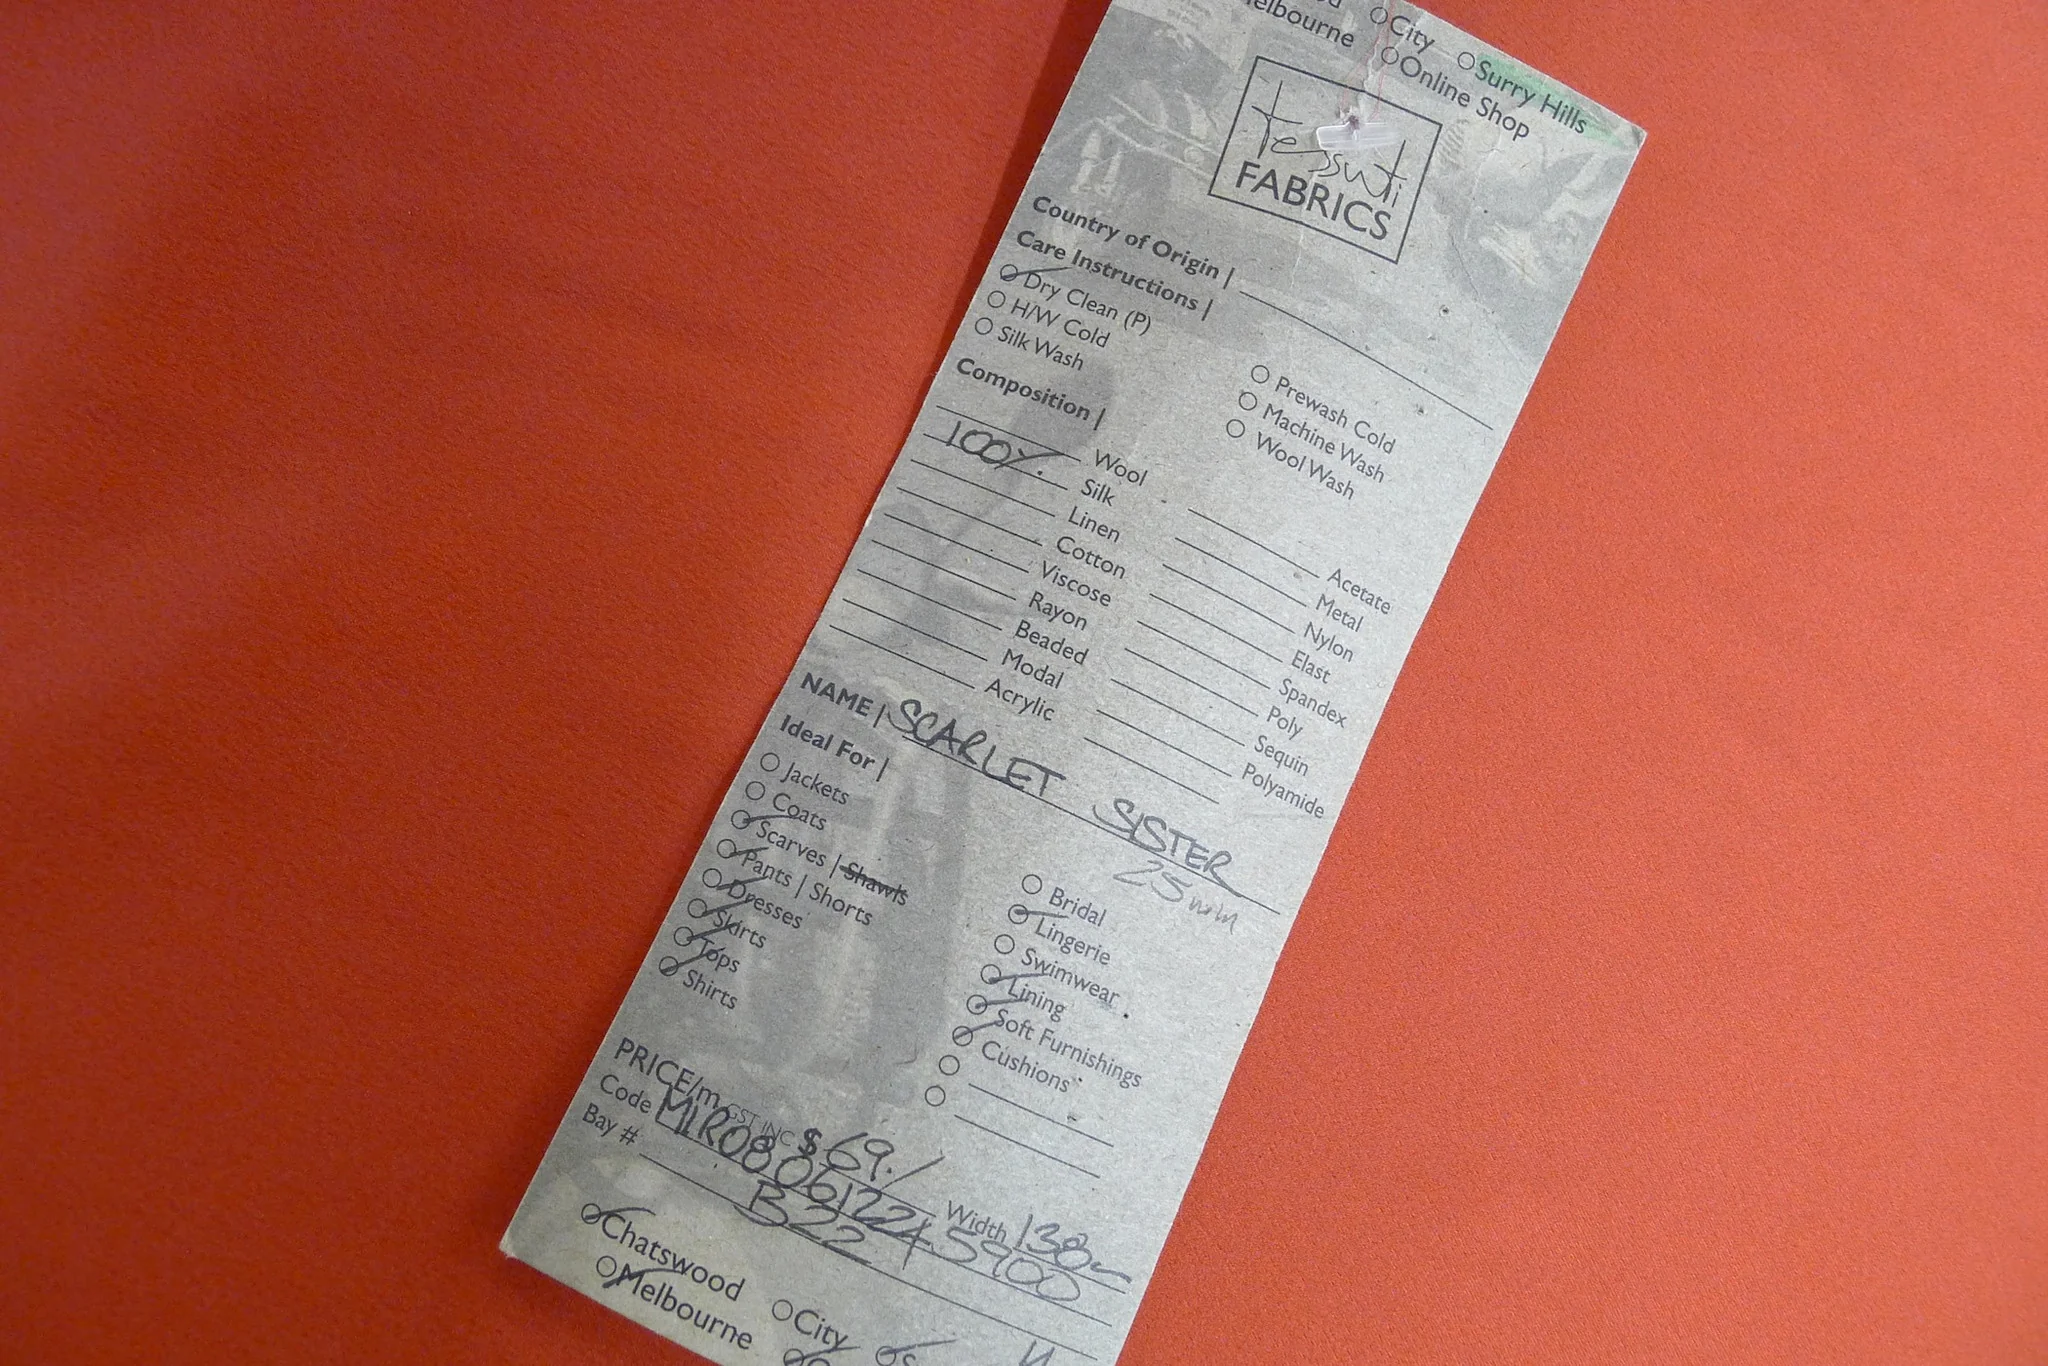 City
Surry Hills
Melbourne
Online Shop
tessuti
FABRICS
Country of Origin |
Care Instructions |
Dry Clean (P)
H/W Cold
Silk Wash
Prewash Cold
Machine Wash
Wool Wash
Composition |
Wool
100% Silk
Linen
Cotton
Viscose
Rayon
Beaded
Modal
Acrylic
Acetate
Metal
Nylon
Elast
Spandex
Poly
Sequin
Polyamide
NAME | SCARLET SISTER
25mm
Ideal For |
Jackets
Coats
Scarves | Shawls
Pants | Shorts
Dresses
Skirts
Tops
Shirts
Bridal
Lingerie
Swimwear
Lining
Soft Furnishings
Cushions
PRICE/m GST INC $69./ Width 138cm
Code
Bay # B22
Chatswood
City
Melbourne